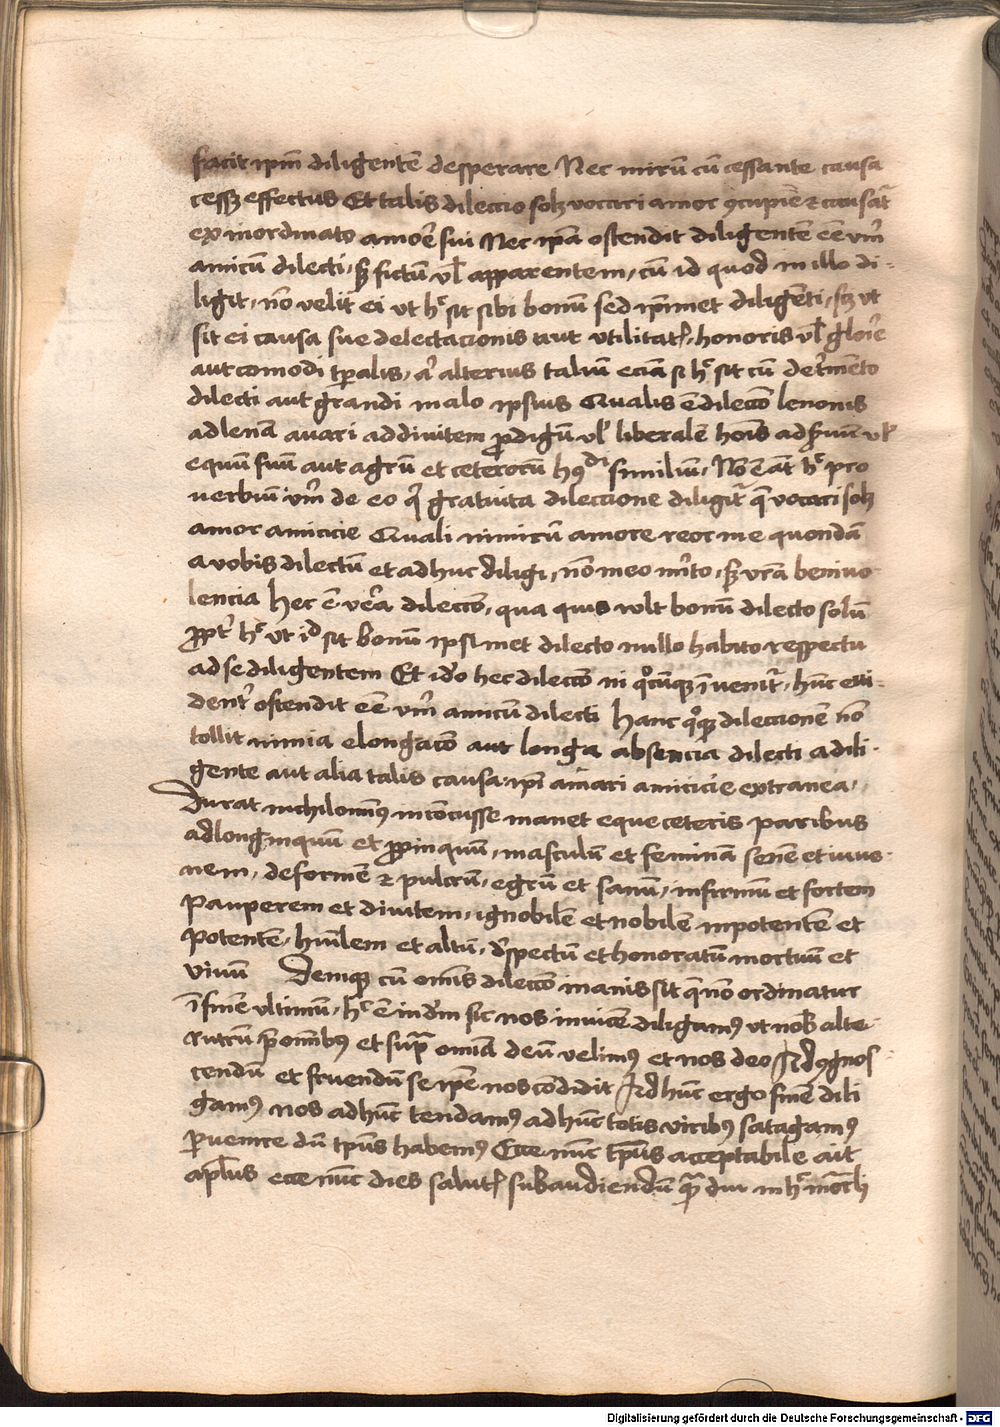 facit ipm̄ diligentē desperare Nec mirū cū cessante causa
cessz effectus Et talis dileccio solz vocari amor ꝯcupiē ⁊ causat᷑
ex inordinato amoē sui Nec ipā ostendit diligentē eē vm̄
amicū dilecti, sz fictū vl̓ apparentem, cū id quod in illo di-
ligit, nō velit ei vt hͦ sit sibi bonū sed ipimet diligēti, sz vt
sit ei causa sue delectacionis aut vtilitatꝭ, honoris vl̓ glorie
aut comodi tp̄alis, aͭ alterius talium eciā si hͦ sit cū det̓mēto
dilecti aut grandi malo ipsius Qualis ē dileccō lenonis
ad lenā auari ad diuitem ꝓdigū vl̓ liberalē hoīs ad s̓uū vl̓
equū suū aut agrū et ceterorū hꝯdi similium, Nō ē aūt hͦ pro
uerbium vm̄ de eo qͥ gratuita dileccione diligit᷑ q̄ vocari solz
amor amicicie Quali nimirū amore reor me quondā
a vobis dilectū et adhuc diligi, nō meo m̓ito, sz vr̄a beniuo-
lencia hec ē vēra dileccō, qua quis wlt bonū dilecto solū
ꝓpt̓ hͦ vt id sit bonū ipsimet dilecto nullo habito respectu
ad se diligentem Et iō hec dileccō in qͦcūqꝫ īuenit᷑, hūc eui-
dent̓ ostendit eē vm̄ amicū dilecti hanc qͦqꝫ dileccionē nō
tollit nimia elongacō aut longa absencia dilecti a dili-
gente aut alia talis causa ipi amari amicicie extranea,
Durat nichilominꝰ inconcusse manet eque ceteris paribus
ad longinquū et ꝓpinquū, masculū et feminā senē et iuue-
nem, deformē ⁊ pulcrū, egrū et sanū, infirmū et fortem
pauperem et diuitem, ignobilē et nobilē inpotentē et
potentē, humilem et altū, d̓spectū et honoratū mortuū et
viuū Demqꝫ cū om̄is dileccō inanis sit q̄ nō ordinatur
ī finē vltimū, hͦ ē in dm̄ sic nos inuicē diligamꝰ vt nob̓ alte
rutrū p̄ omībꝰ et sup̄ omīa deū velimꝰ et nos deo Ad ꝯgnos
cendū et fruendū se ipē nos condidit Ad hūc ergo finē dili
gamꝰ nos ad hūc tendamꝰ ad hūc totis viribꝰ satagamꝰ
ꝑuenire dū tp̄us habemꝰ Ecce nūc tp̄us acceptabile ait
apl̓us ecce nūc dies salutꝭ subaudiendū